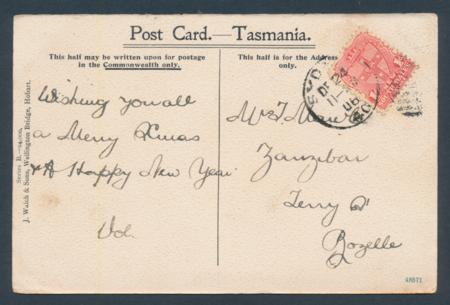 Post Card.—Tasmania.
This half may be written upon for postage
in the Commonwealth only.
This half is for the Address
only.
Wishing you all
a Merry Xmas
& A Happy New Year
Series B.
J. Walch & Sons, Wellington Bridge, Hobart.
DE 24
06
Zanzibar
Terry St
Rozelle
48571